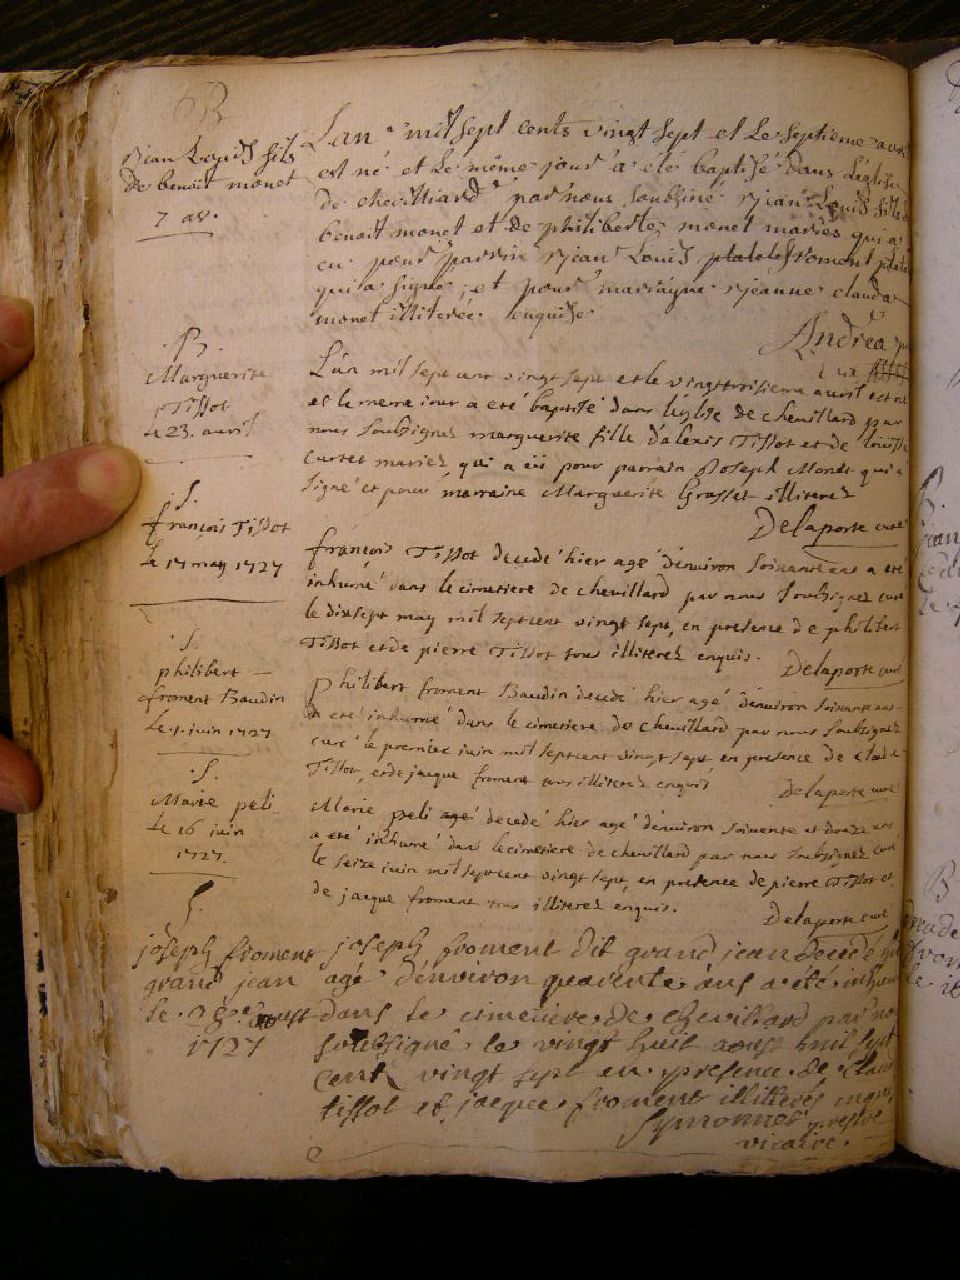 B
jian Louis fils
de benoit monet
7 av.
Lan mil sept cents vingt sept et Le septieme avr
est né et Le même jour a ete baptisé dans L'eglise
de chevilliard par nous soubsiné rjean Louis fils
benoit monet et de philiberte monet mariés qui a
eu pour parrin rjean Louis froment
qui a signé, et pour marrayne rjeanne clauda
monet illiterée enquise.
Andréa
B.
Marguerite
Tissot
le 23. avril
L'an mil sept cent vingt sept et le vingttroisieme avril est né
et le meme iour a eté baptisé dans l'église de chevillard par
nous soubsignez marguerite fille d'alexis Tissot et de louise
curtet mariez qui a eü pour parrain Joseph Monet qui a
signé et pour marraine Marguerite Grosset illiterez
Delaporte curé
S.
françois Tissot
le 17 may 1727
françois Tissot decedé hier agé d'enuiron soixante ans a eté
inhumé dans le cimetiere de chevillard par nous soubsignez curé
le dixsept may mil septcent vingt sept, en presence de philibert
Tissot et de pierre Tissot tous illiterez enquis.
Delaporte curé
S.
philibert
froment Baudin
le 1. juin 1727
Philibert froment Baudin decedé hier agé d'enuiron soixante ans
a eté inhumé dans le cimetiere de chevillard par nous soubsignez
curé le premier iuin mil septcent vingt sept, en presence de claude
Tissot, et de jacque froment tous illiterez enquis
Delaporte curé
S.
Marie peli
le 16 juin
1727.
Marie peli agé decedé hier agé d'enuiron soixente et douze ans
a eté inhumé dans le cimetiere de chevillard par nous soubsignez curé
le seize iuin mil septcent vingt sept, en presence de pierre Tissot et
de jacque froment tous illiterez enquis.
Delaporte curé
S.
joseph froment
grand jean
le 28e aoust
1727
joseph froment dit grand jean decedé hier
agé d'environ quarente ans a été inhumé
dans le cimetiere de chevillard par nous
soubsigné le vingt huit aoust mil sept
cent vingt sept en presence de claude
tissot et jacque froment illitterés enquis
Symonner prestre
vicaire.